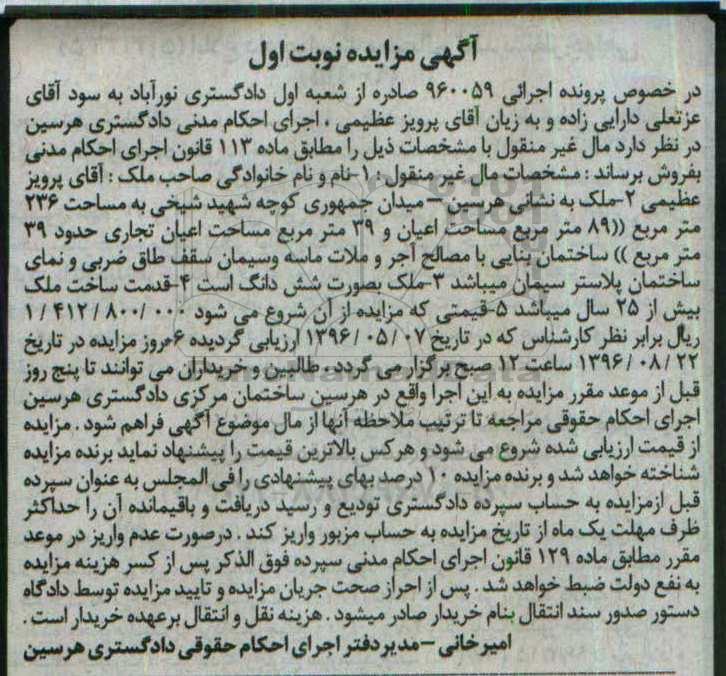 آگهی مزایده نوبت اول
در خصوص پرونده اجرائی ۹۶۰۰۵۹ صادره از شعبه اول دادگستری نورآباد به سود آقای
عزتعلی دارایی زاده و به زیان آقای پرویز عظیمی ، اجرای احکام مدنی دادگستری هرسین
در نظر دارد مال غیر منقول با مشخصات ذیل را مطابق ماده ۱۱۳ قانون اجرای احکام مدنی
بفروش برساند : مشخصات مال غیر منقول . ۱-نام و نام خانوادگی صاحب ملک : آقای پرویز
عظیمی ۲-ملک به نشانی هرسین – میدان جمهوری کوچه شهید شیخی به مساحت ۲۳۶
متر مربع ((۸۹ متر مربع مساحت اعیان و ۳۹ متر مربع مساحت اعیان تجاری حدود ۳۹
متر مربع )) ساختمان بنایی با مصالح آجر و ملات ماسه وسیمان سقف طاق ضربی و نمای
ساختمان پلاستر سیمان میباشد ۳-ملک بصورت شش دانگ است ۴-قدمت ساخت ملک
بیش از ۲۵ سال میباشد ۵-قیمتی که مزایده از آن شروع می شود ۱/۴۱۲/۸۰۰/۰۰۰
ریال برابر نظر کارشناس که در تاریخ ۱۳۹۶/۰۵/۰۷ ارزیابی گردیده ۶-روز مزایده در تاریخ
۱۳۹۶/۰۸/۲۲ ساعت ۱۲ صبح برگزار می گردد . طالبین و خریداران می توانند تا پنج روز
قبل از موعد مقرر مزایده به این اجرا واقع در هرسین ساختمان مرکزی دادگستری هرسین
اجرای احکام حقوقی مراجعه تا ترتیب ملاحظه آنها از مال موضوع آگهی فراهم شود . مزایده
از قیمت ارزیابی شده شروع می شود و هرکس بالاترین قیمت را پیشنهاد نماید برنده مزایده
شناخته خواهد شد و برنده مزایده ۱۰ درصد بهای پیشنهادی را فی المجلس به عنوان سپرده
قبل ازمزایده به حساب سپرده دادگستری تودیع و رسید دریافت و باقیمانده آن را حداکثر
ظرف مهلت یک ماه از تاریخ مزایده به حساب مزبور واریز کند . درصورت عدم واریز در موعد
مقرر مطابق ماده ۱۲۹ قانون اجرای احکام مدنی سپرده فوق الذکر پس از کسر هزینه مزایده
به نفع دولت ضبط خواهد شد . پس از احراز صحت جریان مزایده و تایید مزایده توسط دادگاه
دستور صدور سند انتقال بنام خریدار صادر میشود . هزینه نقل و انتقال برعهده خریدار است .
امیرخانی – مدیر دفتر اجرای احکام حقوقی دادگستری هرسین